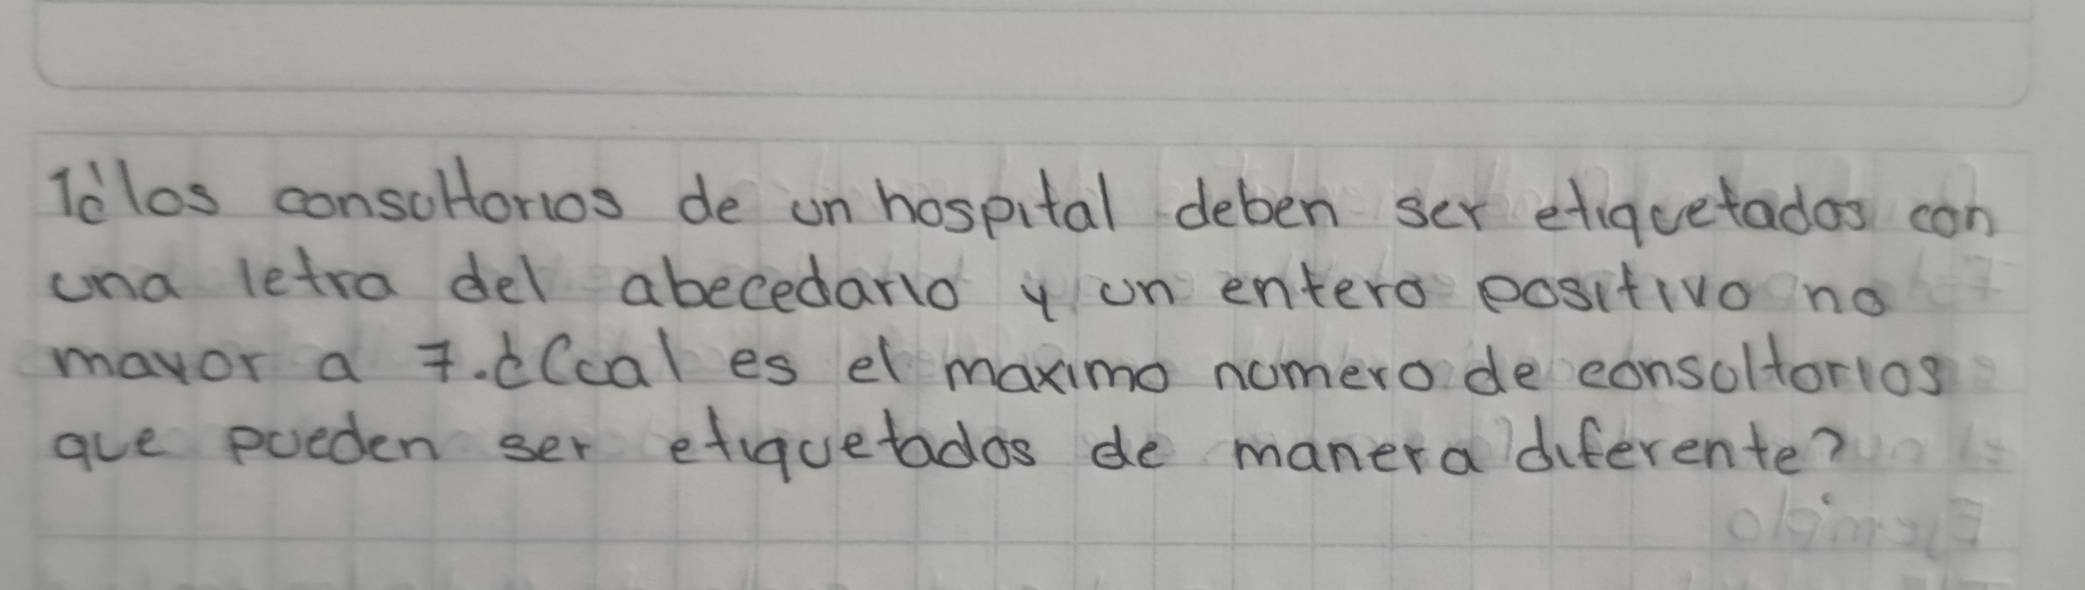 1¿los consultorios de un hospital deben ser etiquetados con
una letra del abecedario y un entero positivo no
mayor a 7. ¿Cual es el maximo numero de consultorios
que pueden ser etiquetados de manera diferente?